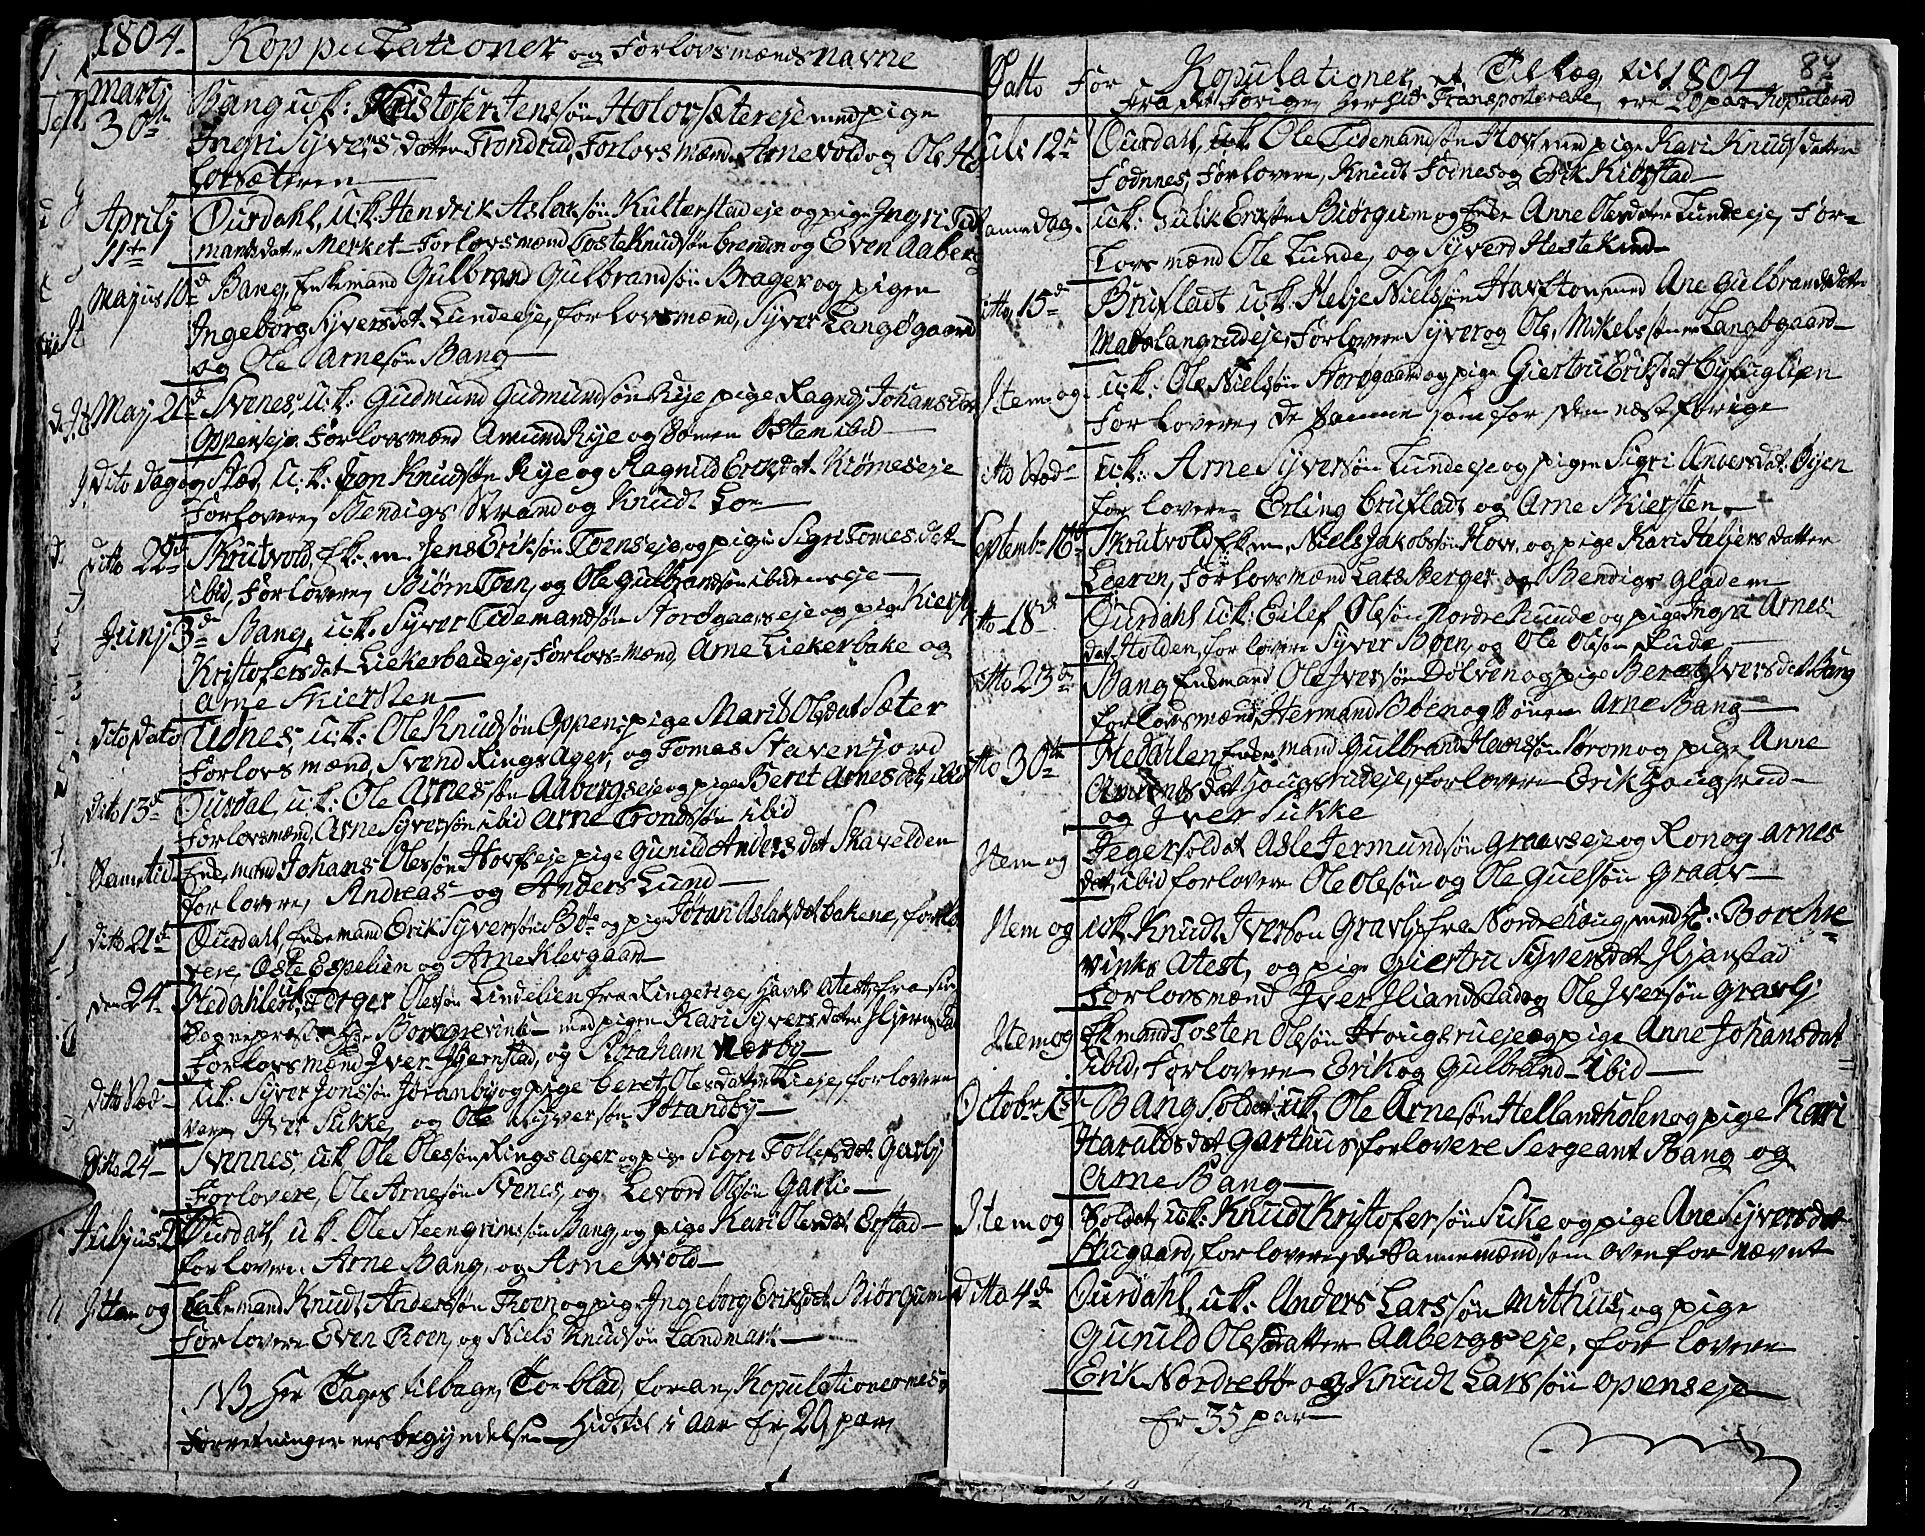 1804. Koppulationer og Forlovsmænds navne
Martj 30te Bang u:k: Kristofer Jenssøn Holorsætereje med pige
Ingri Syvers datter Trondrud, Forlovsmænd Arnevold og Ole Ho
lorsæteren
Aprilj 11te Ourdahl, u:k: Hendrik Aslaksøn Kulterstadeje og pige Ingri Tid
mansdatr Merket Forlovsmænd Toste Knudsøn brenden og Even Aaberg
Majus 10d Bang, Enkemand Gulbrand Gulbrandsøn Brager og pigen
Ingeborg Syversdat. Lundeeje, forlovsmænd, Syver Langøgaard
og Ole Arnesøn Bang
May 21d Svenes, u:k: Gudmund Gudmundsøn Rye pige Ragnd, Johansdat
Oppenseje Forlovsmænd Amund Rye og Osten ibid
Dito dag og Sted, u:k: Jon Knudsøn Rye og Ragnild Eriksdat. Kiørneseje
Forlovere, Bendigs Strand og Knudt Loe
ditto 22d Skrutvold, Ek: m. Jens Eriksøn Toenseje og pige Sigri Tomesdat
ibid, Forlovere, Biørn Toen, og Ole Gulbrandsøn ibidenseje
Junj 3d Bang, u:k: Syver Tidemandsøn Storøgaardseje og pige Kiersti
Kristofersdat Liekerbakeje, Forlovsmænd, Arne Liekerbake og
Arne Skiersten
Dito Dato Tidnes, u:k: Ole Knudsøn Oppen, pige Marit Olsdat Sæter
Forlovsmænd, Svend Ringsager, og Tomes Stavenjord
dito 13d Ourdal, u:k: Ole Arnessøn Aabergseje og pige Beret Arnesdat, ibid
Forlovsmænd, Arne Syversøn ibid Arne Trondsøn ibid
Samme tid Enkemand Johans Olesøn Hovseje pige Gunild Andersdat Skavelden
forlovere, Andreas og Anders Lund
ditto 21d Ourdahl, Enkemand Erik Syversøn Bøe og pige Jøran Aslaksdat bakene, forlo
vere, Oste Espelien og Arne Klergaard
den 24. Hedahlen, u:k: Torger Olesøn Lindelien fra Ringerige, havde Atest fra sin
Sognepræst Hr Borgrevink med pigen Kari Syversdatter Hjernstad
Forlovsmænd Iver Hjernstad, og Abraham Nærby
ditto Sted u:k: Syver Jonssøn Jøranby og pige beret Olesdat Lieje, forlovere
vare, Iver Sukke, og Ole Syversøn Jørandby
Ditto 24 Svennes, u:k Ole Olessøn Ringsager og pige Sigri Tollefsdat Garlij
Forlovere, Ole Arnesøn Svenes, og Levord Olsøn Garlie
Julyus 2d Ourdahl, u.k. Ole Steengrimsøn Bang, og pige Kari Olesdat Erstad
forlovere Arne Bang, og Arne Wold
Ittem og Enkemand Knudt Anderssøn Thoen og pige Ingeborg Eriksdat Biørgum
Forlovere Even Thoen, og Niels Knudsøn Landmark
NB Her Tages tilbage, Toe blad, foran, Kopulationernes
Forretninger nes begyndelse Hidtil i Aar Er 20 par,
Datto For Kopulationer, et Tillæg til 1804 84
Fra det Forige, her hid Transporterede, ere 20 par Kopulered
Juli 12te Ourdahl, u:k: Ole Tidemandsøn Hov med pige Kari Knudsdatter
Fødnnes, Forlovere, Knudt Fødnes og Erik Kiørstad
Samme dag u:k: Gulik Erikssøn Biørgum og Anne Olesdatr Lundeeje, For-
lovsmænd Ole Lunde, og Syverd Hestekind
ditto 15d Brufladt u:k: Helje Nielssøn Havstøw med Ane Gulbrandsdatr
Langrudeje, Forlovere Syver og Ole Mikelssønner Langøgaard
Item og u:k: Ole Nielsøn Storøgaard og pige Giertru Eriksdat byfuglien
Forlovere, de Samme som for den næst forige
ditto Sted u:k: Arne Syversøn Lundeeje og pigen Sigri Andersdat. Øijen
forlovere Erling brufladt og Arne Skiersten
Septembr 16de Skrutvold Ek: m. Niels Jakobsøn How, og pige Kari Heljersdatter
Leeren, Forlovsmænd Lars Berger og Bendigs Gladem
ditto 18d Ourdahl, u:k: Eilef Olesøn Nordre Ruude og pige Ingri Arnes
dat, Holden, forlovere Syver Bøen, og Ole Olesøn Rude
ditto 23d Bang Enkemand Ole Iversøn Dølven og pige Beret Iversdat Bang
forlovsmænd, Hermand Bøen og Arne Bang
ditto 30te Hedahlen Enkemand Gulbrand Hansøn Strøm og pige Anne
Amundsdat Hougsrudeje, forlovere Erik Hougsrud
og Iver Sukke
Item og Jegersoldat Asle Jermundsøn Graavseje og Ronog Arnes
dat, ibid forlovere Ole Olesøn og Ole Gulsøn Graav
Item og u:k. Knudt Iversøn Gravlj fra Nordrehoug, med Hr: Borchre
vinks Atest, og pige Giertru Syversdat Hjanstad
Forlovsmænd Iver Hjandstad og Ole Iversøn Gravlj
Item og Ekmand Tosten Olesøn Hougsrueje og pige Anne Johansdat
ibid, Forlovere Erik og Gulbrand ibid
Octobr. 1ste Bang Soldat, u:k: Ole Arnesøn Hellandsholen og pige Kari
Haraldsdat Garthus forlovere Sergeant Bang og
Arne Bang
Item og Soldat, u:k: Knudt Kristofersøn Sucke og pige Ane Syversdat
Hugaard, forlovere, de Samme mænd, som oven for nævnt
Ditto 4de Ourdahl, u:k: Anders Larssøn Mithus, og pige
Gunild Olesdatter Aabergseje, forlovere
Erik Nordrebø og Knudt Larssøn Openseje
Er 35 par